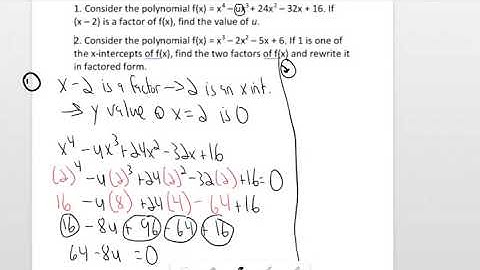 1. Consider the polynomial f(x) = x⁴ – ux³ + 24x² – 32x + 16. If
(x – 2) is a factor of f(x), find the value of u.
2. Consider the polynomial f(x) = x³ – 2x² – 5x + 6. If 1 is one of
the x-intercepts of f(x), find the two factors of f(x) and rewrite it
in factored form.
① x-2 is a factor → 2 is an x int.
②
→ y value @ x=2 is 0
x⁴-ux³+24x²-32x+16
(2)⁴-u(2)³+24(2)²-32(2)+16=0
16 -u(8)+24(4)-64+16
16 -8u+96-64+16
64-8u =0